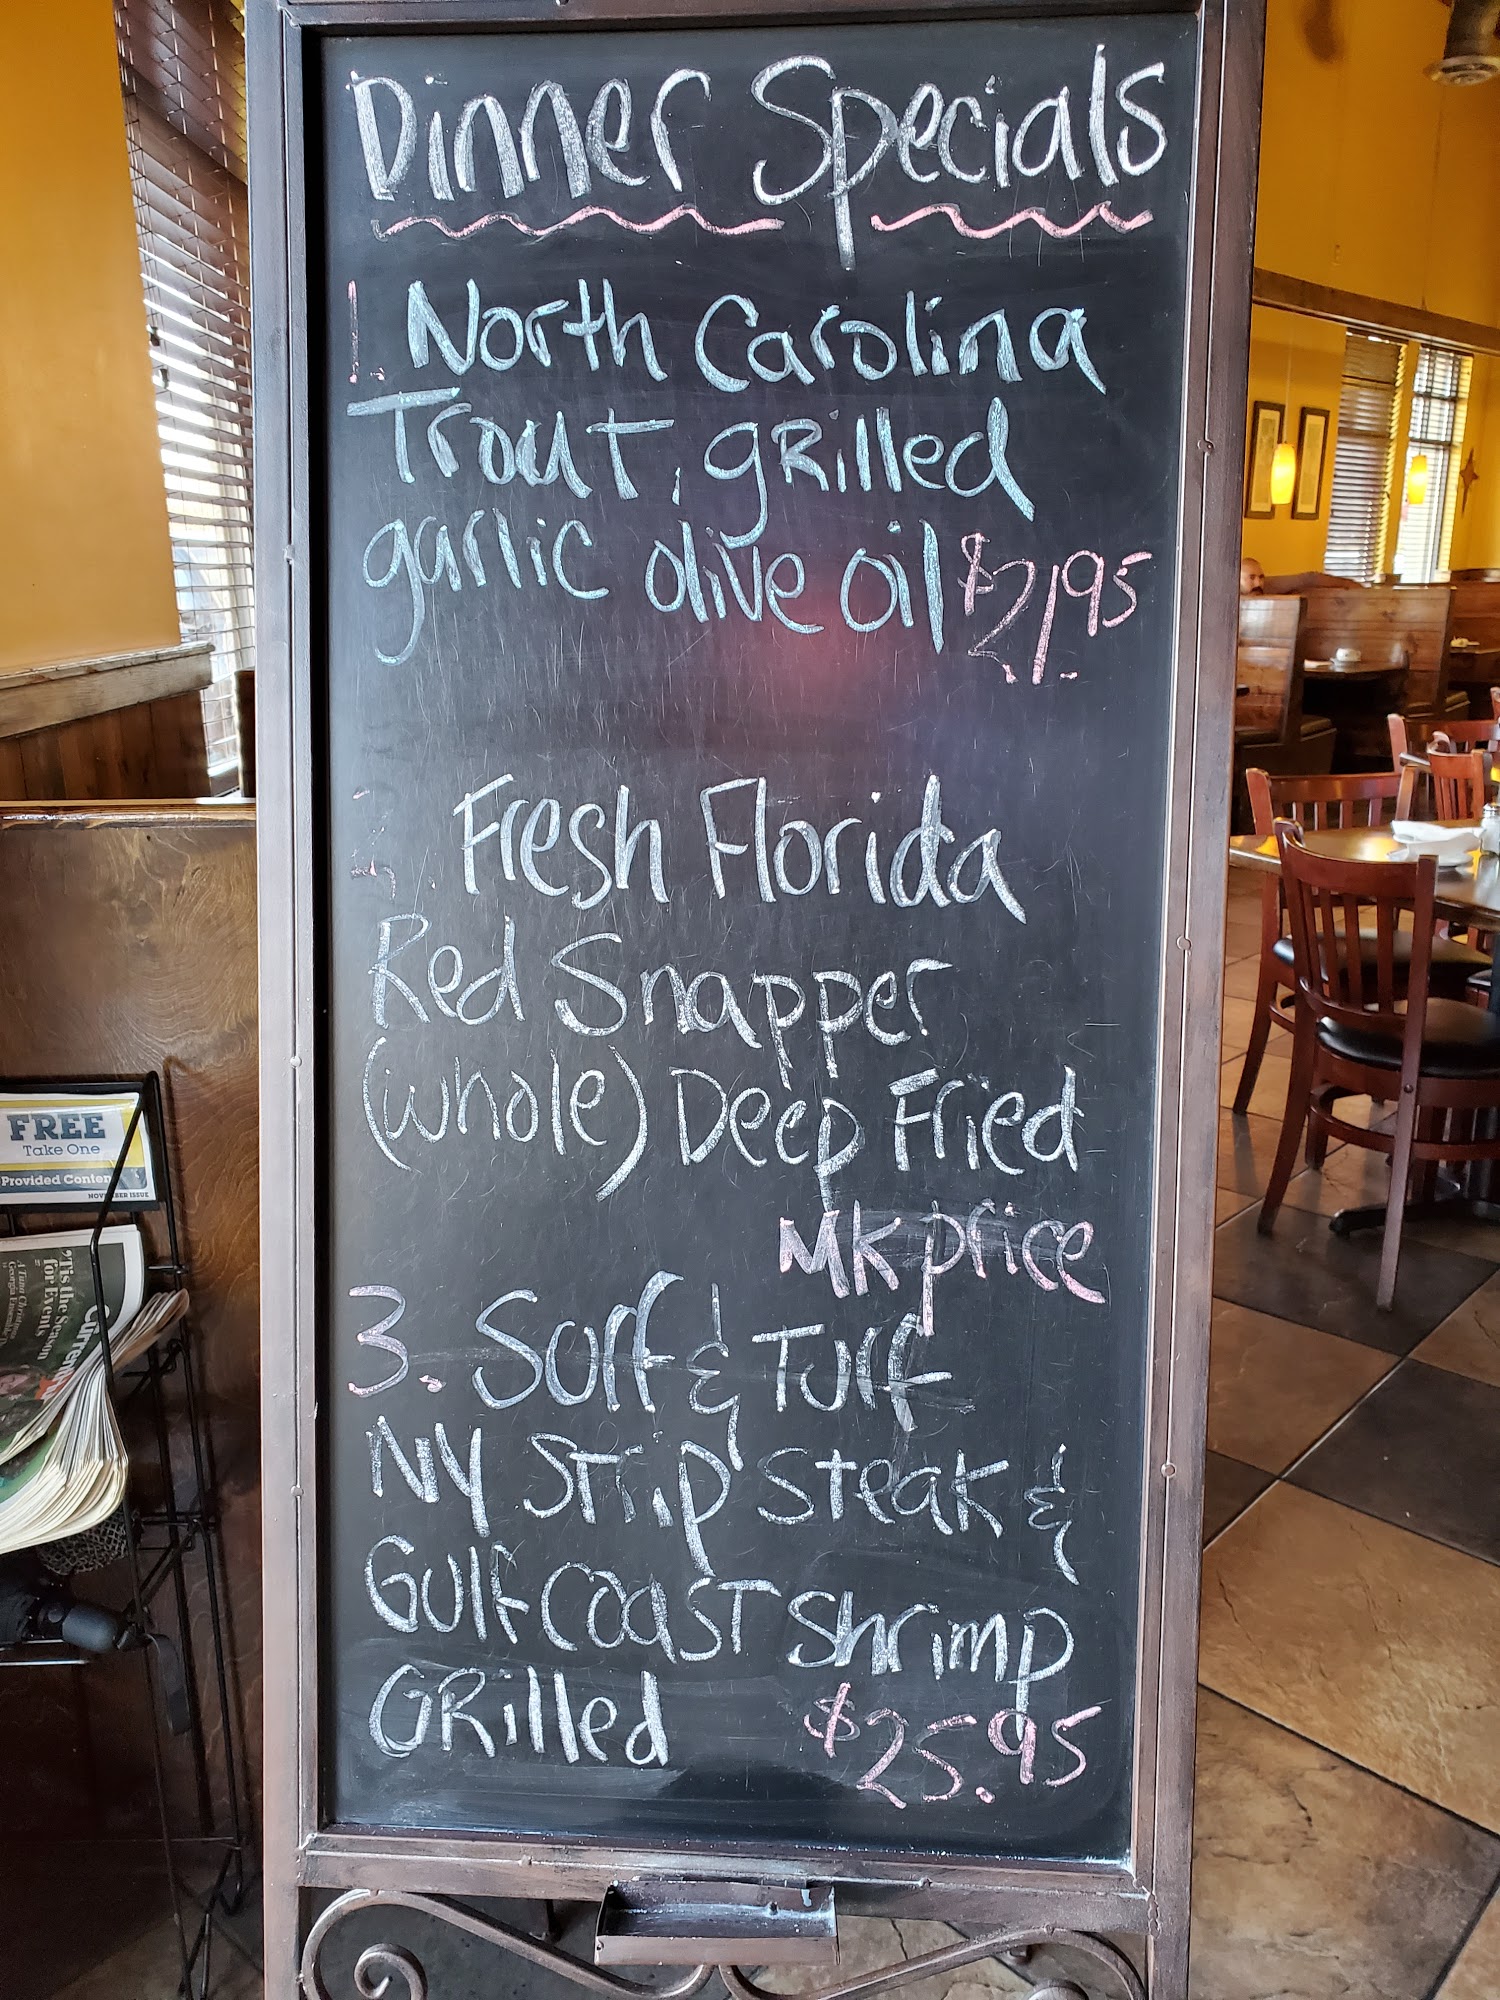 Dinner Specials
1. North Carolina
Trout, gRilled
garlic olive oil $21.95
Fresh Florida
Red Snapper
(whole) Deep Fried
MK price
3. Surf & Turf
NY Strip Steak &
Gulf Coast Shrimp
GRilled $25.95
FREE
Take One
Provided Conten
NOVEMBER ISSUE
'Tis the Season
for Events